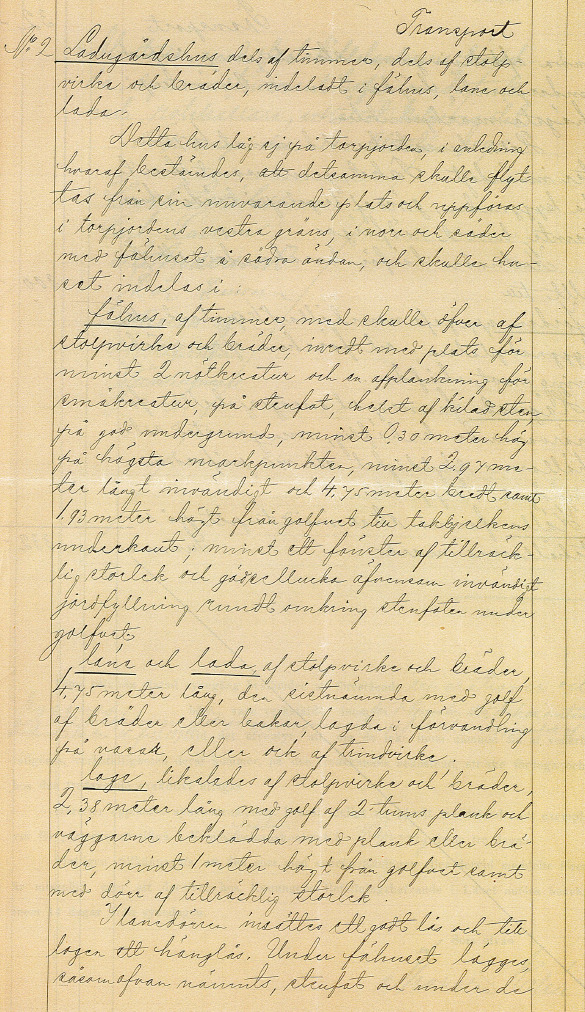 Transport
No 2 Ladugårdshus dels af timmer, dels af stolp-
virke och bräder, indeladt i fähus, lane och
lada.
Detta hus låg ej på torpjorden, i anledning
hvaraf bestämdes, att detsamma skulle flyt-
tas från sin nuvarande plats och uppföras
i torpjordens vestra gräns, i norr och söder
med fähuset i södra ändan, och skulle hu-
set indelas i:
fähus, af timmer, med skulle öfver af
stolpvirke och bräder, inredt med plats för
minst 2 nötkreatur och en afplankning för
småkreatur, på stenfot, helst af kilad sten,
på god undergrund, minst 0,30 meter hög
på högsta markpunkten, minst 2,97 me-
ter långt invändigt och 4,75 meter bredt samt
1,93 meter högt från golfvet till takbjelkens
underkant; minst ett fönster af tillräck-
lig storlek och gödsellucka äfvensom invändigt
jordfyllning rundt omkring stenfoten under
golfvet.
lana och lada, af stolpvirke och bräder,
4,75 meter lång, den sistnämnda med golf
af bräder eller bakar, lagda i förvandling
på vasar, eller ock af rundvirke.
loge, likaledes af stolpvirke och bräder,
2,38 meter lång med golf af 2 tums plank och
väggarne beklädda med plank eller brä-
der, minst 1 meter högt från golfvet samt
med dörr af tillräcklig storlek.
I lanedörren insättes ett godt lås och till
logen ett hänglås. Under fähuset lägges,
såsom ofvan nämnts, stenfot och under de